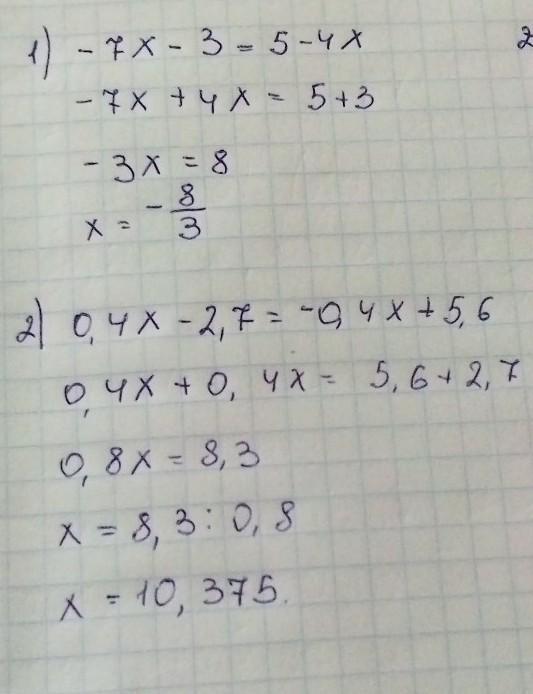 1) -7x - 3 = 5 - 4x
2
-7x + 4x = 5 + 3
-3x = 8
x = -8/3
2) 0,4x - 2,7 = -0,4x + 5,6
0,4x + 0,4x = 5,6 + 2,7
0,8x = 8,3
x = 8,3 : 0,8
x = 10,375.